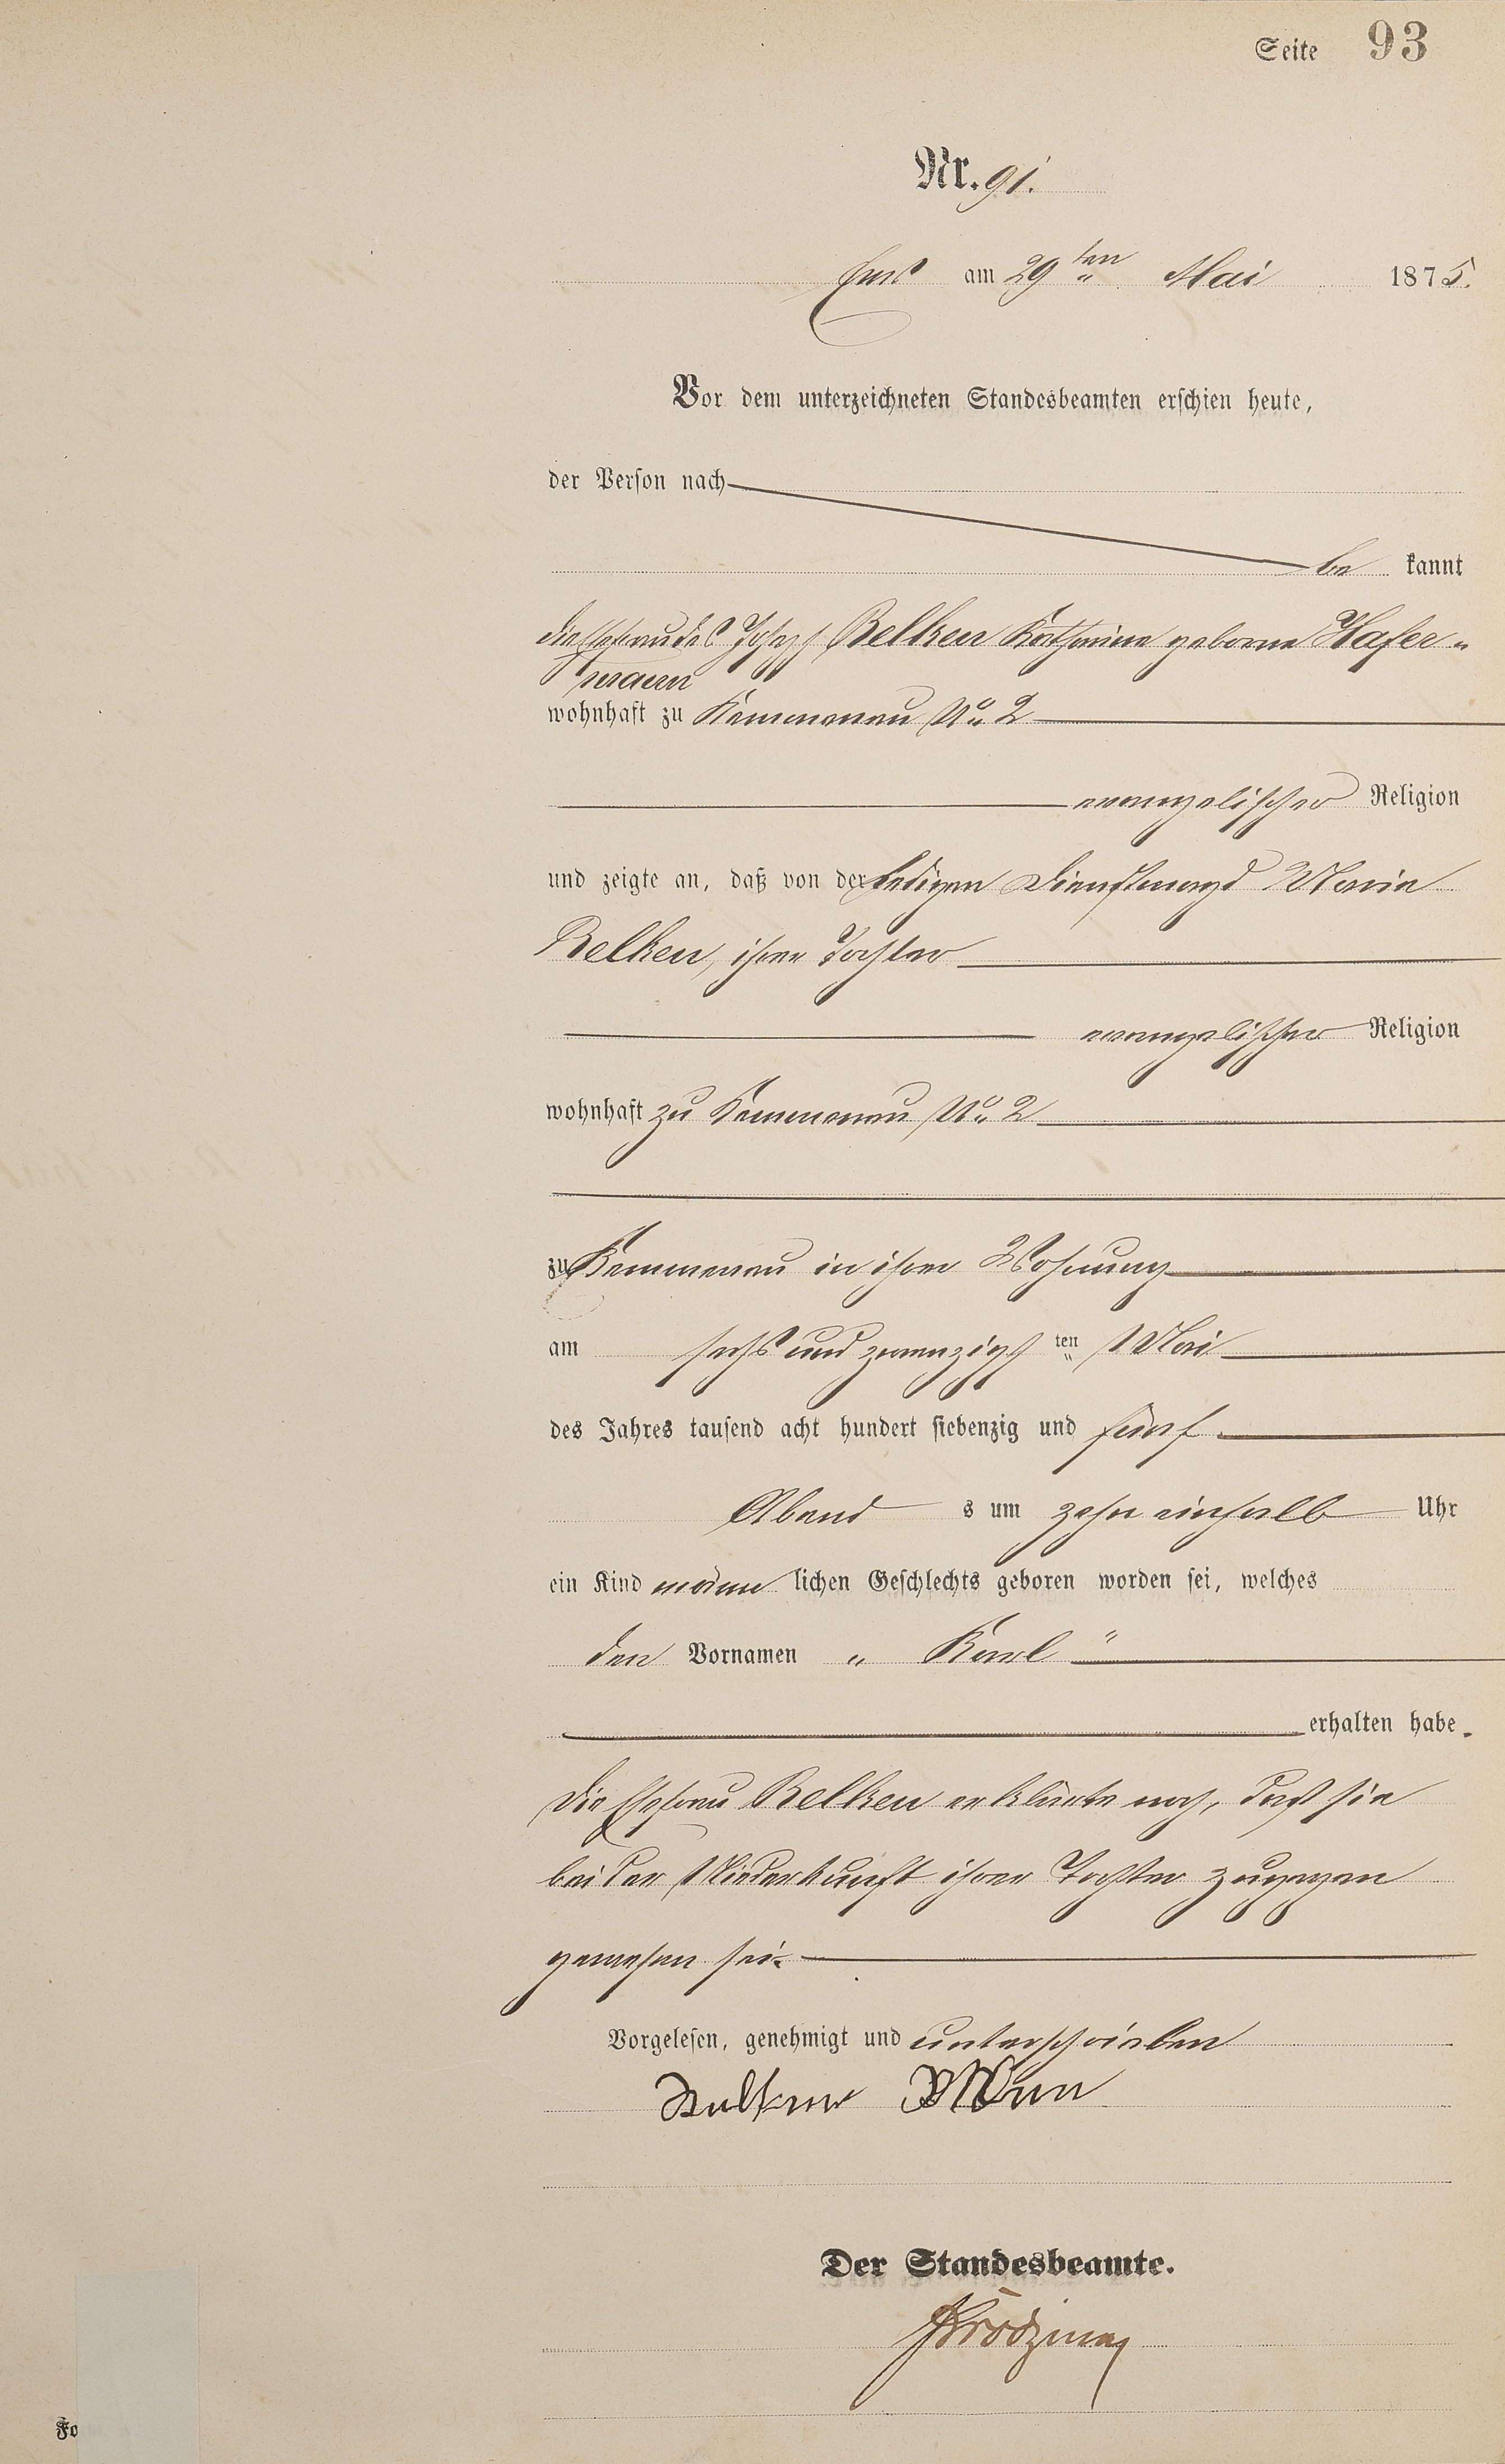 Seite 93
Nr. 91.
Ems am 29ten Mai 1875.
Vor dem unterzeichneten Standesbeamten erschien heute,
der Person nach
be kannt
die Ehefrau des Joseph Relken Katharina geborne Hafer-
mann
wohnhaft zu Kemmenau No 2
evangelischer Religion
und zeigte an, daß von der ledigen Dienstmagd Marie
Relken, ihrer Tochter
evangelischer Religion
wohnhaft zu Kemmenau No 2
zu Kemmenau in ihrer Wohnung
am sechs und zwanzigsten Mai
des Jahres tausend acht hundert siebenzig und fünf
Abend s um zehn einhalb Uhr
ein Kind männ lichen Geschlechts geboren worden sei, welches
den Vornamen „ Karl "
erhalten habe.
Die Ehefrau Relken erklärte noch, daß sie
bei der Niederkunft ihrer Tochter zugegen
gewesen sei.
Vorgelesen, genehmigt und unterschrieben
Der Standesbeamte.
Fo